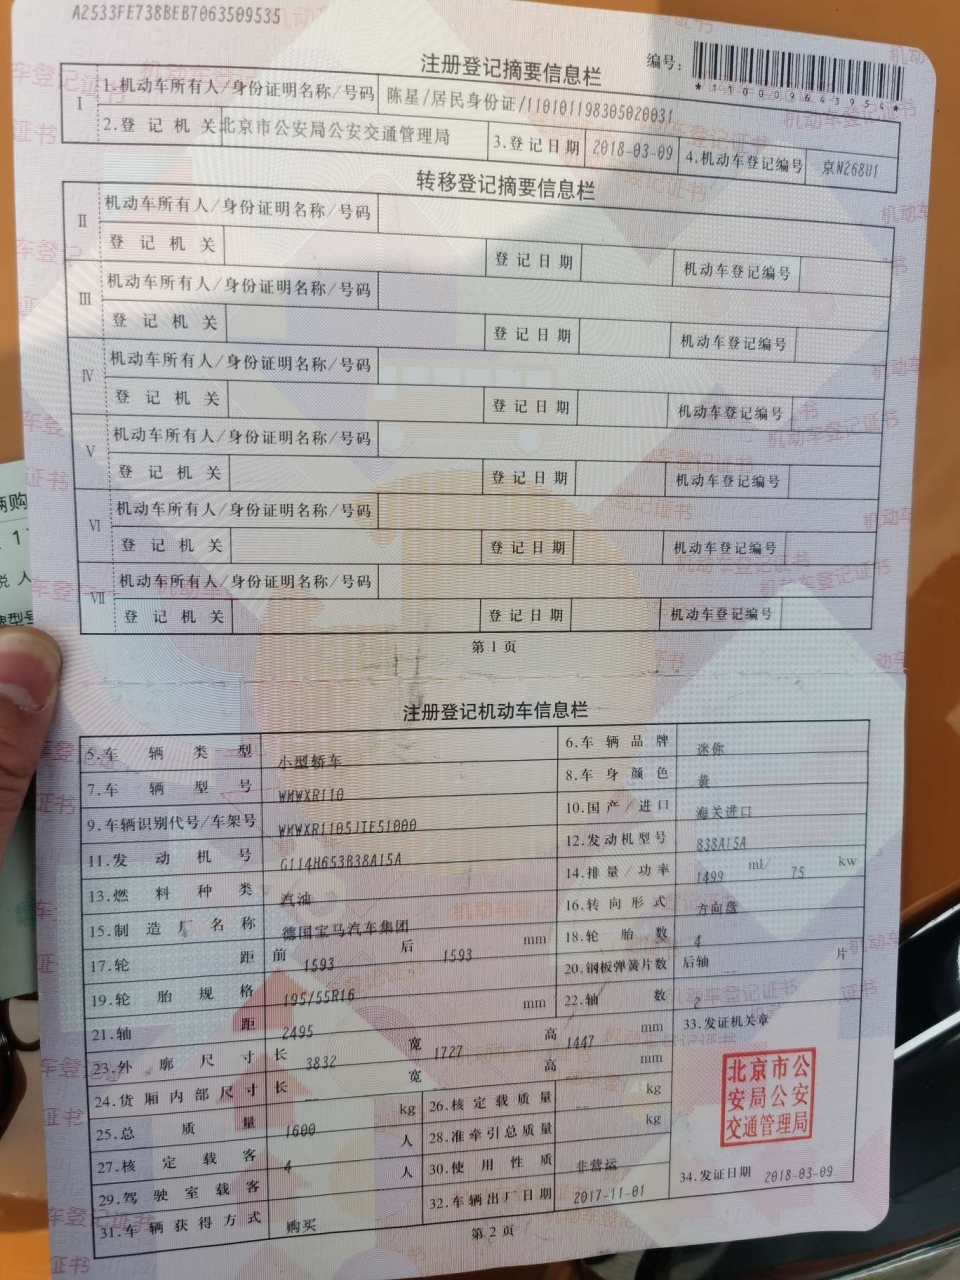 A2533FE738BEB7063509535
注册登记摘要信息栏
编号:
*110009643954*
Ⅰ
1.机动车所有人/身份证明名称/号码 陈星/居民身份证/110101198305020031
2.登记机关 北京市公安局公安交通管理局 3.登记日期 2018-03-09 4.机动车登记编号 京N268U1
转移登记摘要信息栏
Ⅱ
机动车所有人/身份证明名称/号码
登记机关 登记日期 机动车登记编号
Ⅲ
机动车所有人/身份证明名称/号码
登记机关 登记日期 机动车登记编号
Ⅳ
机动车所有人/身份证明名称/号码
登记机关 登记日期 机动车登记编号
Ⅴ
机动车所有人/身份证明名称/号码
登记机关 登记日期 机动车登记编号
Ⅵ
机动车所有人/身份证明名称/号码
登记机关 登记日期 机动车登记编号
Ⅶ
机动车所有人/身份证明名称/号码
登记机关 登记日期 机动车登记编号
第1页
注册登记机动车信息栏
5.车辆类型 小型轿车 6.车辆品牌 迷你
7.车辆型号 WMWXR110 8.车身颜色 黄
9.车辆识别代号/车架号 WMWXR1105JTE51000 10.国产/进口 海关进口
11.发动机号 G114H653B38A15A 12.发动机型号 B38A15A
13.燃料种类 汽油 14.排量/功率 1499 ml/ 75 kw
15.制造厂名称 德国宝马汽车集团 16.转向形式 方向盘
17.轮距 前 1593 后 1593 mm 18.轮胎数 4
19.轮胎规格 195/55R16 20.钢板弹簧片数 后轴 -- 片
21.轴距 2495 mm 22.轴数 2
23.外廓尺寸 长 3832 宽 1727 高 1447 mm 33.发证机关章
24.货厢内部尺寸 长 -- 宽 高 mm
25.总质量 1600 kg 26.核定载质量 -- kg
27.核定载客 4 人 28.准牵引总质量 kg
29.驾驶室载客 人 30.使用性质 非营运
31.车辆获得方式 购买 32.车辆出厂日期 2017-11-01
北京市公
安局公安
交通管理局
34.发证日期 2018-03-09
第2页